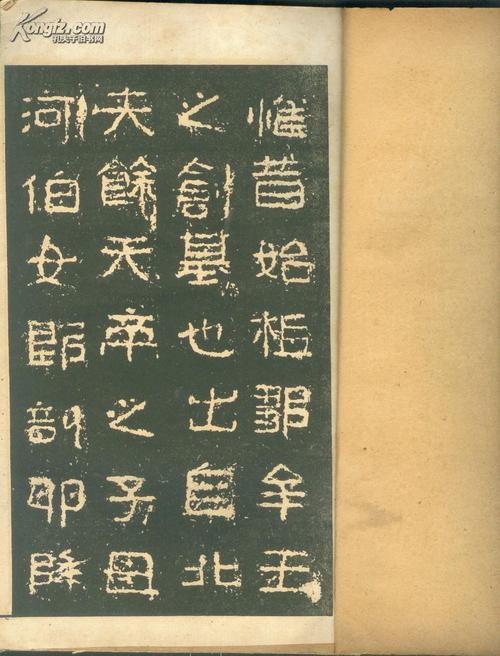 Kongfz.com
孔夫子旧书网
惟昔始祖鄒牟王
之創基也出自北
夫餘天帝之子母
河伯女郎剖卵降